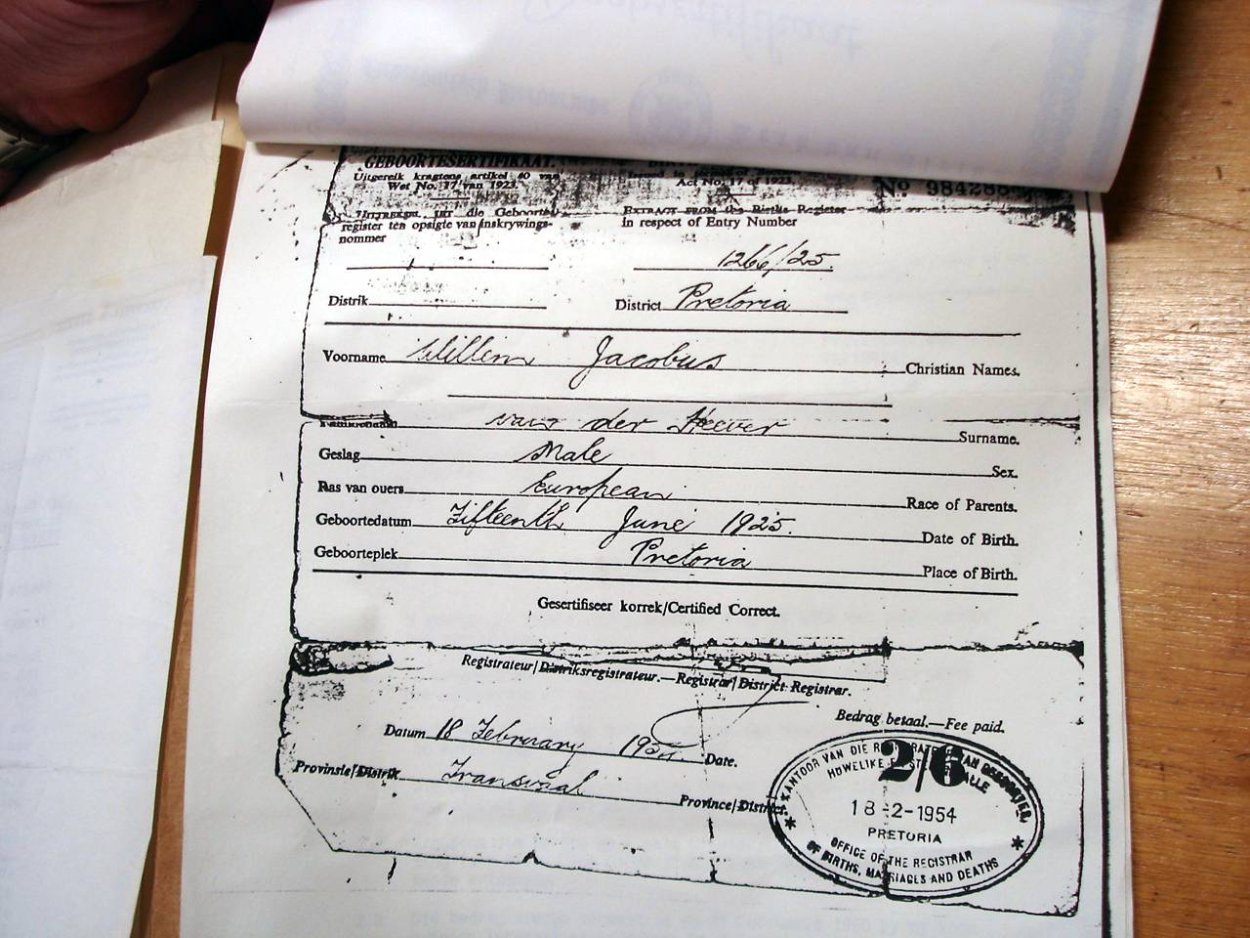 GEBOORTESERTIFIKAAT.
Uitgereik kragtens artikel 40 van
Wet No. 17 van 1923.
Act No. 17 of 1923.
No 984288
UITTREKSEL UIT die Geboorte-
register ten opsigte van inskrywings-
nommer
EXTRACT FROM the Births Register
in respect of Entry Number
1266/25.
Distrik
District Pretoria
Voorname Willem Jacobus Christian Names.
van der Heever Surname.
Geslag Male Sex.
Ras van ouers European Race of Parents.
Geboortedatum Fifteenth June 1925. Date of Birth.
Geboorteplek Pretoria Place of Birth.
Gesertifiseer korrek/Certified Correct.
Registrateur/Distriksregistrateur.—Registrar/District Registrar.
Bedrag betaal.—Fee paid.
Datum 18 February Date.
Provinsie/Distrik Transvaal Province/District.
2/6
KANTOOR VAN DIE
18-2-1954
PRETORIA
OFFICE OF THE REGISTRAR
OF BIRTHS, MARRIAGES AND DEATHS